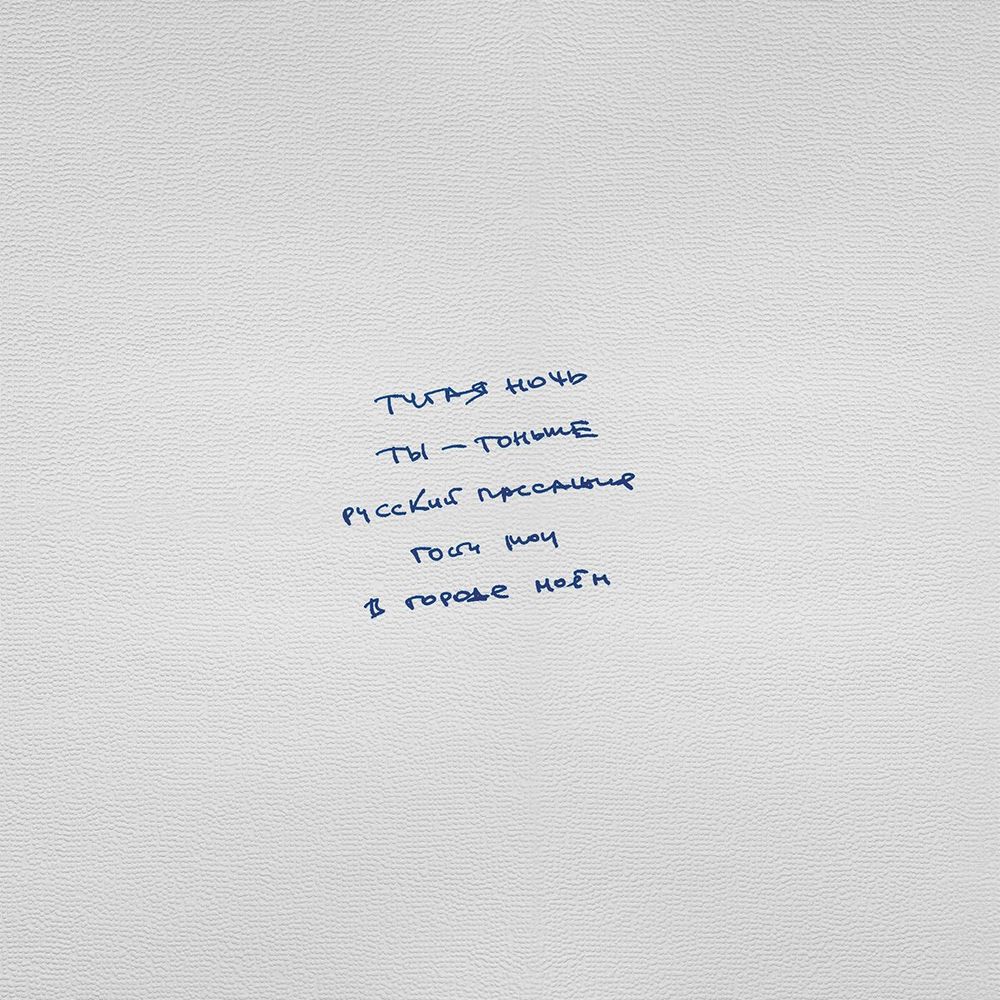 Тугая ночь
Ты — тоньше
Русский пассажир
Гости мои
В городе моём